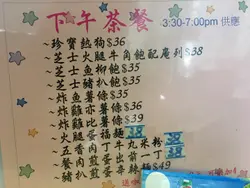 下午茶餐 3:30-7:00pm 供應
～珍寶熱狗$36
～芝士火腿牛角飽配庵列$38
～芝士魚柳飽$35
～芝士豬扒飽$35
～炸魚薯條$35
～炸雞亦薯條$36
～炸雞比薯條$39
～火腿蛋福麵
～餐肉蛋丁丸米粉
～五香肉丁出一丁
～豬扒煎蛋辛辣麵$49